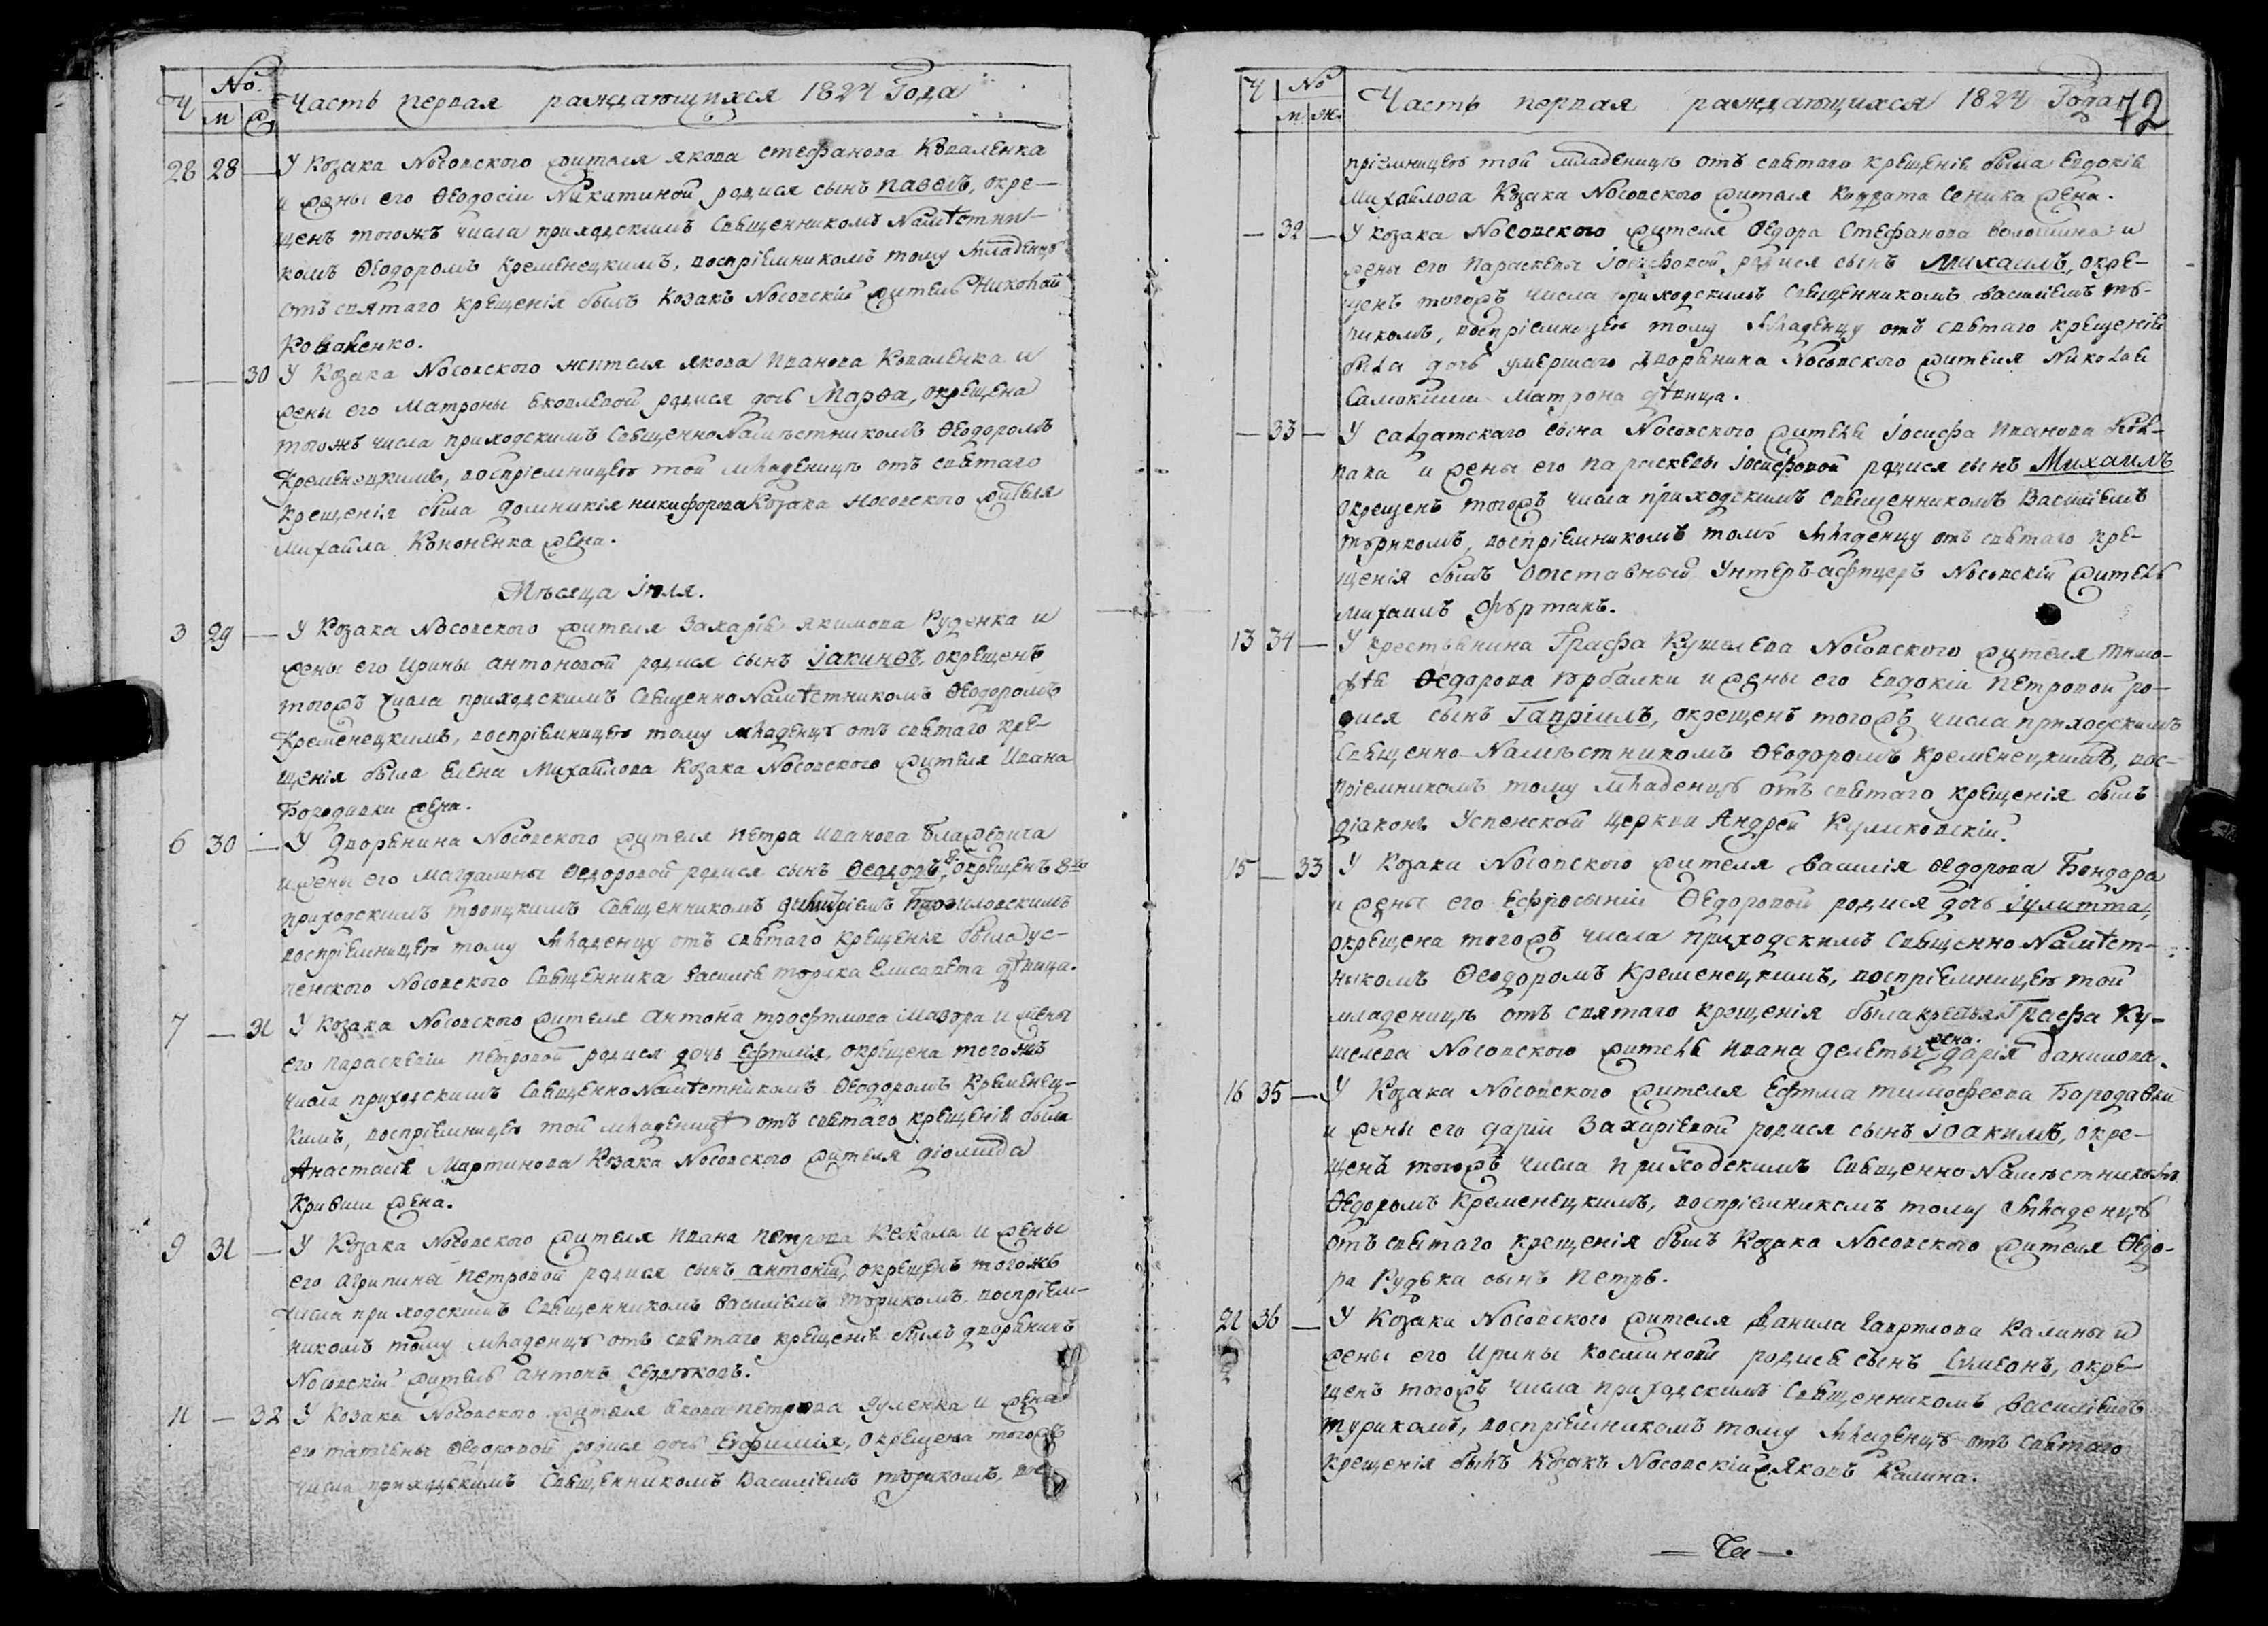 Ч № м ж Часть первая раждающихся 1824 Года
28 28 — У Козака Носовского жителя Якова Стефанова Коваленка
и жены его Ѳеодосіи Никитиной родися сынъ Павелъ, окре-
щенъ тогожъ числа приходскимъ Священникомъ Намѣстни-
комъ Ѳеодоромъ Кременецкимъ, воспріемникомъ тому младенцу
отъ святаго крещенія былъ Козакъ Носовскій житель Николай
Коваленко.
— — 30 У Козака Носовского жителя Якова Иванова Коваленка и
жены его Матроны Яковлевой родися дочь Марѳа, окрещена
тогожъ числа приходскимъ Священно Намѣстникомъ Ѳеодоромъ
Кременецкимъ, воспріемницею той младеницѣ отъ святаго
крещенія была Домникія Никифорова Козака Носовского жителя
Михайла Кононенка жена.
Мѣсяца Іюля.
3 29 — У Козака Носовского жителя Захарія Якимова Руденка и
жены его Ирины Антоновой родися сынъ Іакинѳъ, окрещенъ
тогожъ числа приходскимъ Священно Намѣстникомъ Ѳеодоромъ
Кременецкимъ, воспріемницею тому младенцу отъ святаго кре-
щенія была Елена Михайлова Козака Носовского жителя Ивана
Бородавки жена.
6 30 — У Дворянина Носовского жителя Петра Иванова Блажевича
и жены его Магдалины Ѳедоровой родися сынъ Ѳеодоръ, окрещенъ 8го
приходскимъ Троицкимъ Священникомъ Димитріемъ
воспріемницею тому младенцу отъ святаго крещенія была ус-
пенского Носовского Священника Василія Турика Елисавета дѣвица.
7 — 31 У Козака Носовского жителя Антона Трофимова Мазора и жены
его Параскевіи Петровой родися дочь Ефимія, окрещена тогожъ
числа приходскимъ Священно Намѣстникомъ Ѳеодоромъ Кременец-
кимъ, воспріемницею той младеницѣ отъ святаго крещенія была
Анастасія Мартинова Козака Носовского жителя Діомида
Кривши жена.
9 31 — У Козака Носовского жителя Ивана Петрова и жены
его Агрипины Петровой родися сынъ Антоній, окрещенъ тогожъ
числа приходскимъ Священникомъ Василіемъ Турикомъ воспріем-
никомъ тому младенцу отъ святаго крещенія былъ дворянинъ
Носовскій житель Антонъ Сердюковъ.
11 — 32 У Козака Носовского жителя Якова Петрова Дуленка и жены
его Татіяны Ѳедоровой родися дочь Евфимія, окрещена тогожъ
числа приходскимъ Священникомъ Василіемъ Турикомъ, вос
Ч № м ж. Часть первая раждающихся 1824 Года 72
пріемницею той младеницѣ отъ святаго крещенія была Евдокія
Михайлова Козака Носовского жителя Кондрата Сеника жена.
— 32 — У Козака Носовского жителя Ѳедора Стефанова Волошина и
жены его Параскевы Іосифовой родися сынъ Михаилъ, окре-
щенъ тогожъ числа приходскимъ Священникомъ Василіемъ Ту-
рикомъ, воспріемницею тому младенцу отъ святаго крещенія
была дочь умершаго Дворянина Носовского жителя Николая
Матрона дѣвица.
— 33 — У салдатскаго сына Носовского жителя Іосифа Иванова Кол-
пака и жены его Параскевы Іосифовой родися сынъ Михаилъ
окрещенъ тогожъ числа приходскимъ Священникомъ Василіемъ
Турикомъ, воспріемникомъ тому младенцу отъ святаго кре-
щенія былъ Отставный Унтеръ-афицеръ Носовскій житель
Михаилъ Фуртакъ.
13 34 — У крестьянина Графа Кушелева Носовского жителя Тимо-
фѣя Ѳедорова Корбалки и жены его Евдокіи Петровой ро-
дися сынъ Гавріилъ, окрещенъ тогожъ числа приходскимъ
Священно-Намѣстникомъ Ѳеодоромъ Кременецкимъ, вос-
пріемникомъ тому младенцу отъ святаго крещенія былъ
Діаконъ Успенской Церкви Андрей Куликовскій.
15 — 33 У Козака Носовского жителя Василія Ѳедорова Бондара
и жены его Ефросыніи Ѳедоровой родися дочь Іулитта,
окрещена тогожъ числа приходскимъ Священно Намѣст-
никомъ Ѳеодоромъ Кременецкимъ, воспріемницею той
младеницѣ отъ святаго крещенія была крестьян. Графа Ку-
шелева Носовского жителя Ивана Делеты жена. Дарія Данилова.
16 35 — У Козака Носовского жителя Ефима Тимофеева Бородавки
и жены его Даріи Захаріевой родися сынъ Іоакимъ, окре-
щенъ тогожъ числа приходскимъ Священно-Намѣстникомъ
Ѳедоромъ Кременецкимъ, воспріемникомъ тому младенцу
отъ святаго крещенія былъ Козака Носовского жителя Ѳедо-
ра Рудька сынъ Петръ.
21 36 — У Козака Носовского жителя Данила Гаврилова Калины и
жены его Ирины Косминой родися сынъ Симеонъ, окре-
щенъ тогожъ числа приходскимъ Священникомъ Василіемъ
Турикомъ, воспріемникомъ тому младенцу отъ святаго
крещенія былъ Козакъ Носовскій ж. Яковъ Калина.
— Ча —.